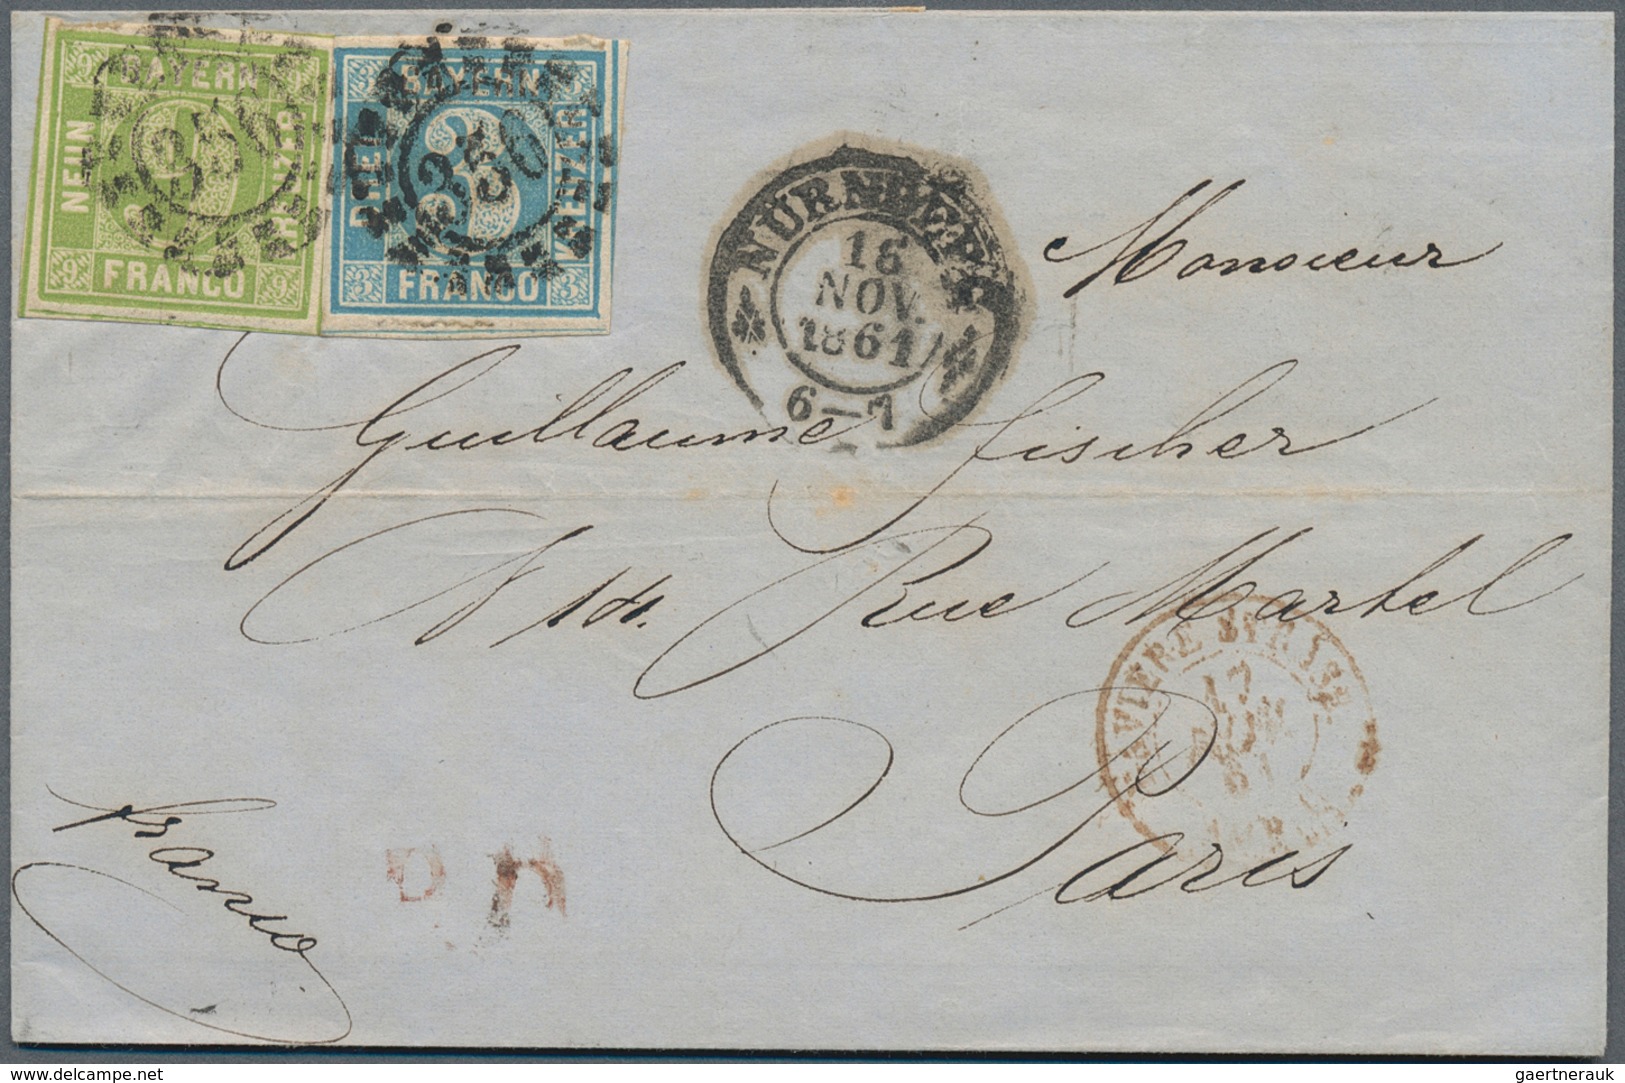 BAYERN
NEUN
KREUZER
FRANCO
9 9 9
350
BAYERN
DREI
KREUZER
FRANCO
3 3
350
NÜRNBERG
16
NOV.
1861
6–7
Monsieur
Guillaume Fischer
N 14. Rue Martel
Paris
BAVIERE STRASB.
17
61
franco
P. D.
© CopyRight Delcampe
gaertnerauk